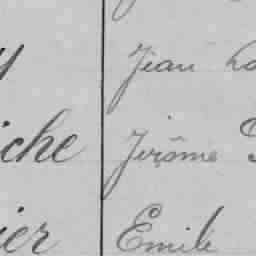 y Jean
iche Jérôme
ier Emile